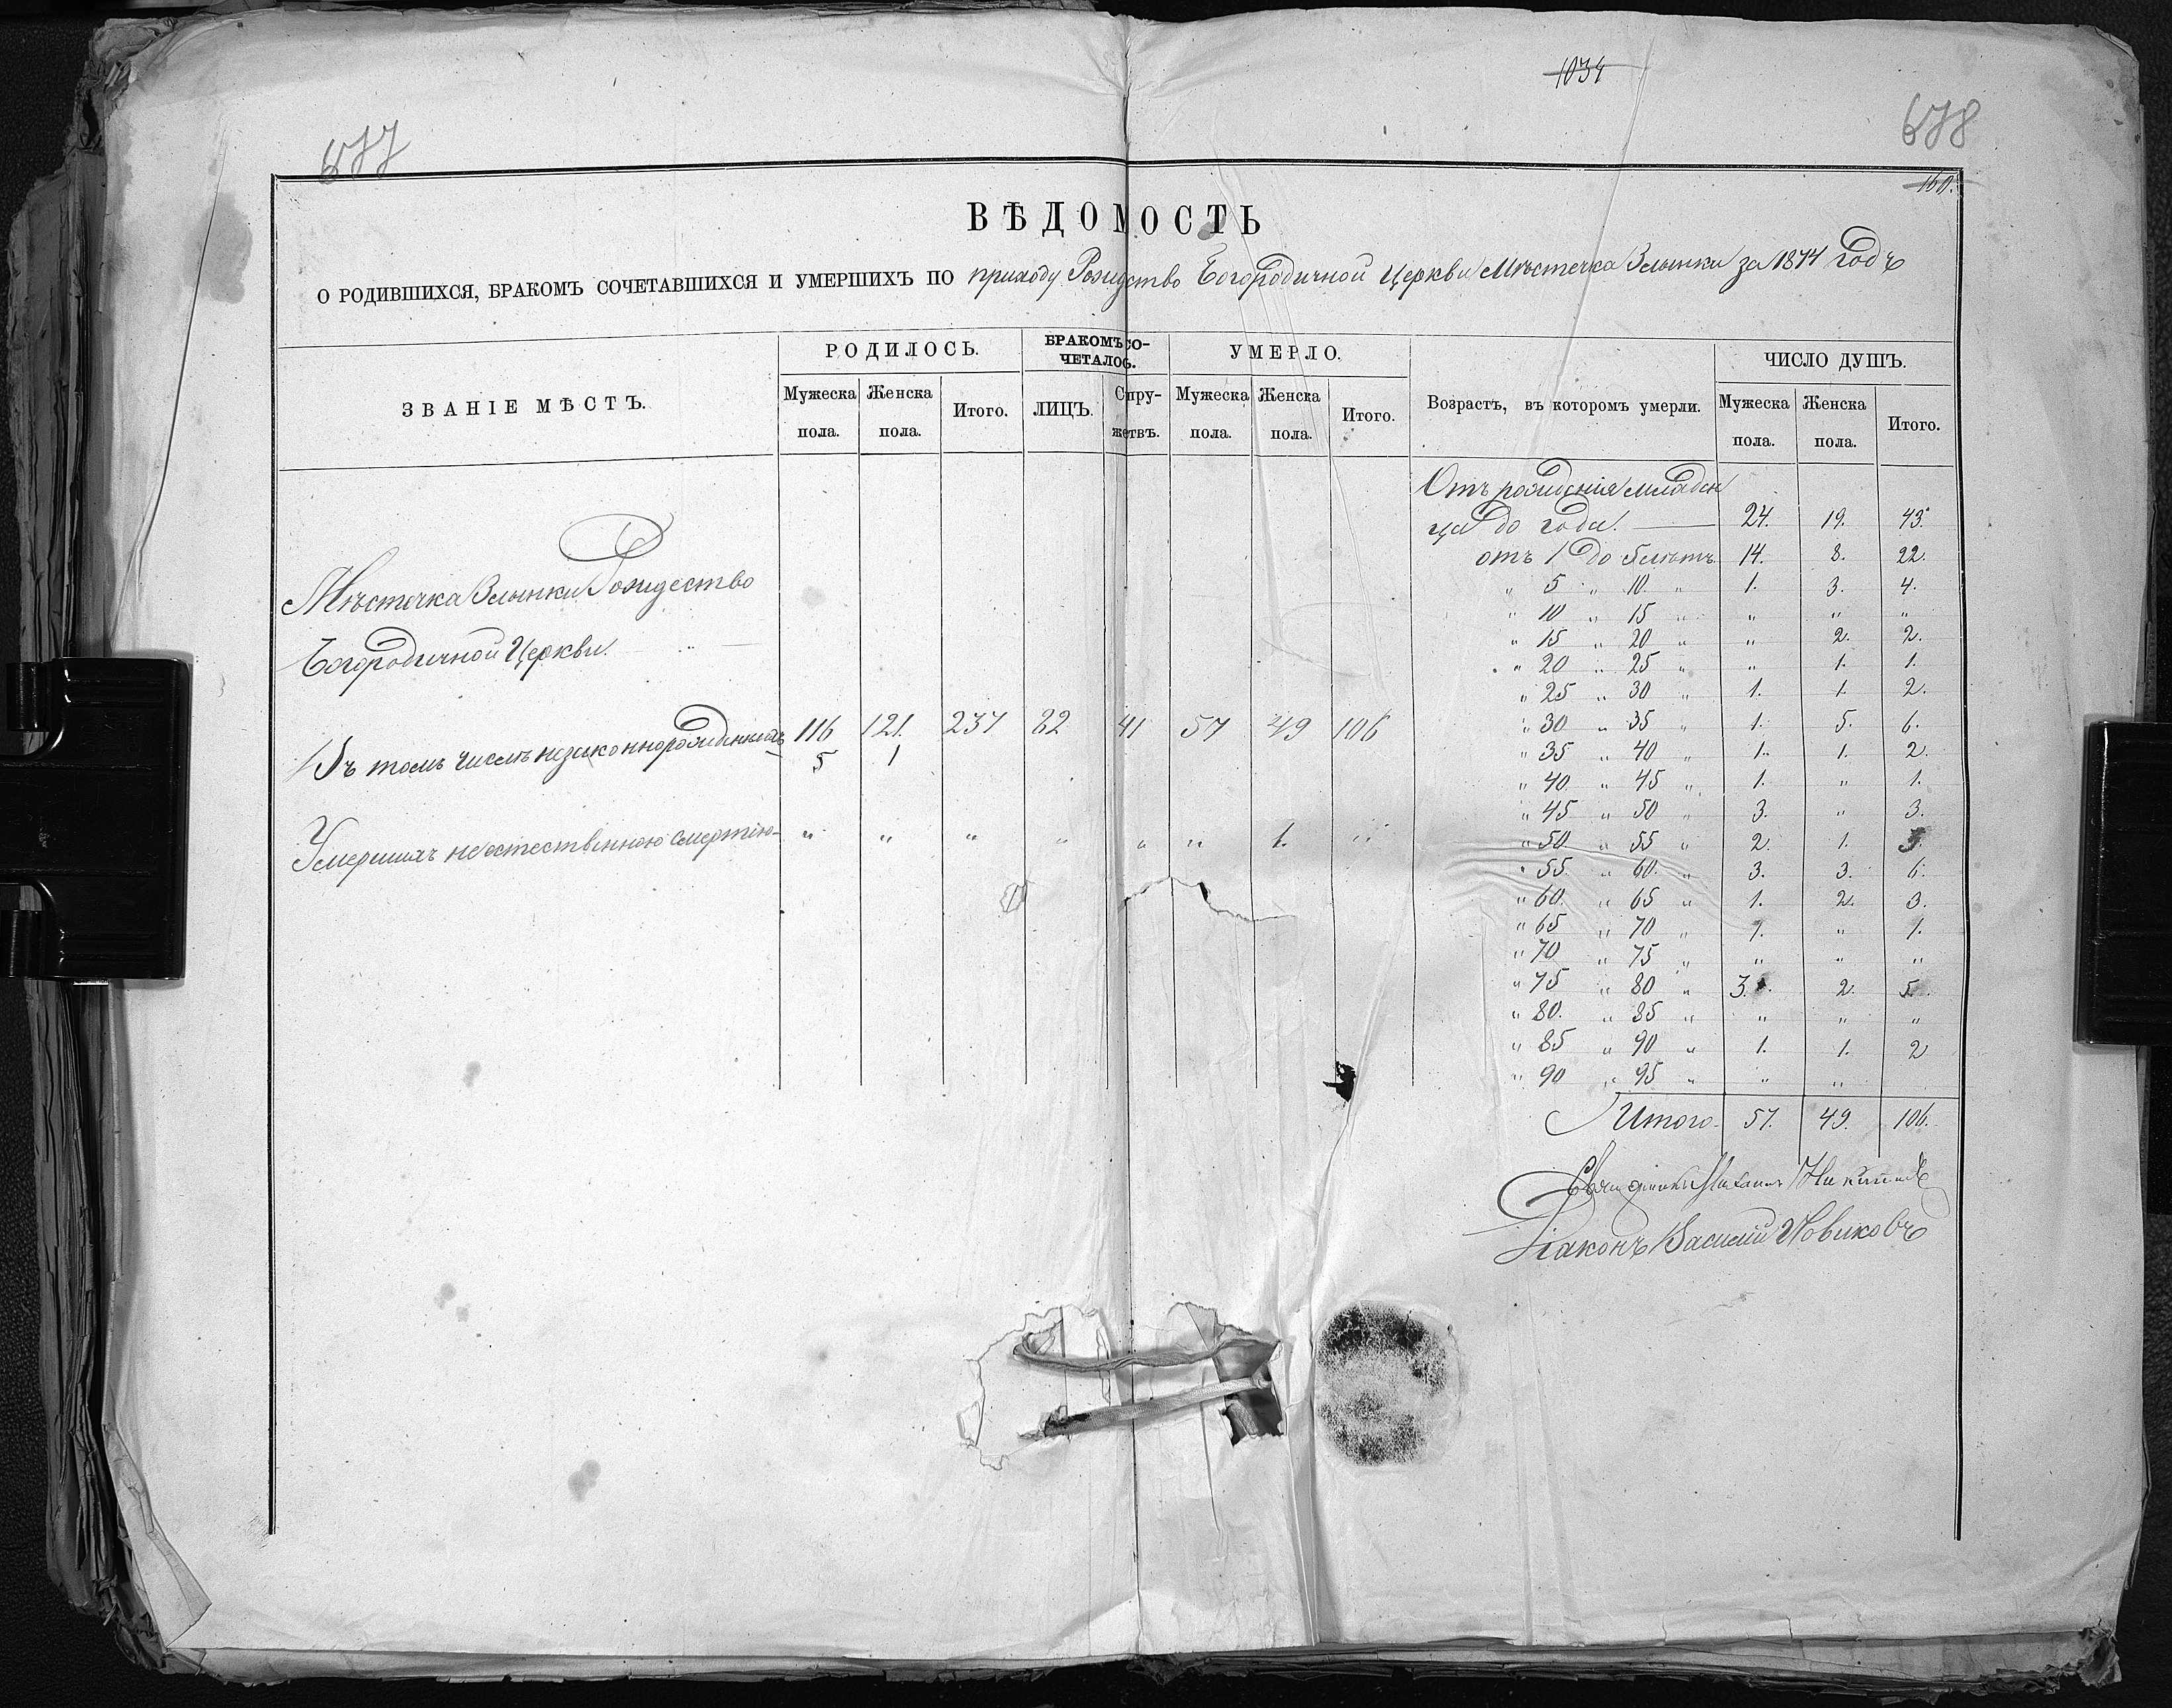 1034
677
678
160.
ВѢДОМОСТЬ
О РОДИВШИХСЯ, БРАКОМЪ СОЧЕТАВШИХСЯ И УМЕРШИХЪ ПО приходу Рождество Богородичной Церкви Мѣстечка Злынки за 1874 годъ
ЗВАНІЕ МѢСТЪ.
РОДИЛОСЬ.
Мужеска пола.
Женска пола.
Итого.
БРАКОМЪ СО-
ЧЕТАЛОСЬ.
ЛИЦЪ.
Супру-
жетвъ.
УМЕРЛО.
Мужеска пола.
Женска пола.
Итого.
Возрастъ, въ которомъ умерли.
ЧИСЛО ДУШЪ.
Мужеска пола.
Женска пола.
Итого.
Мѣстечка Злынки Рождество
Богородичной Церкви.
116 121. 237 82 41 57 49 106
Въ томъ числѣ незаконнорожденныхъ 5 1
Умершихъ неестественною смертію „ „ „ „ „ „ 1. „
Отъ рожденія младен
ца до года. 24. 19. 43.
отъ 1 до 5 лѣтъ 14. 8. 22.
„ 5 „ 10. „ 1. 3. 4.
„ 10 „ 15 „ „ „ „
„ 15 „ 20 „ „ 2. 2.
„ 20 „ 25 „ „ 1. 1.
„ 25 „ 30 „ 1. 1. 2.
„ 30 „ 35 „ 1. 5. 6.
„ 35 „ 40 „ 1. 1. 2.
„ 40 „ 45 „ 1. „ 1.
„ 45 „ 50 „ 3. „ 3.
„ 50 „ 55 „ 2. 1. 3.
„ 55. „ 60. „ 3. 3. 6.
„ 60. „ 65 „ 1. 2. 3.
„ 65 „ 70 „ 1. „ 1.
„ 70 „ 75 „ „ „ „
„ 75 „ 80 „ 3. 2. 5.
„ 80. „ 85 „ „ „ „
„ 85 „ 90 „ 1. 1. 2
„ 90 „ 95 „ „ „
Итого 57. 49. 106.
Священникъ Михаилъ
Діаконъ Василій Новиковъ